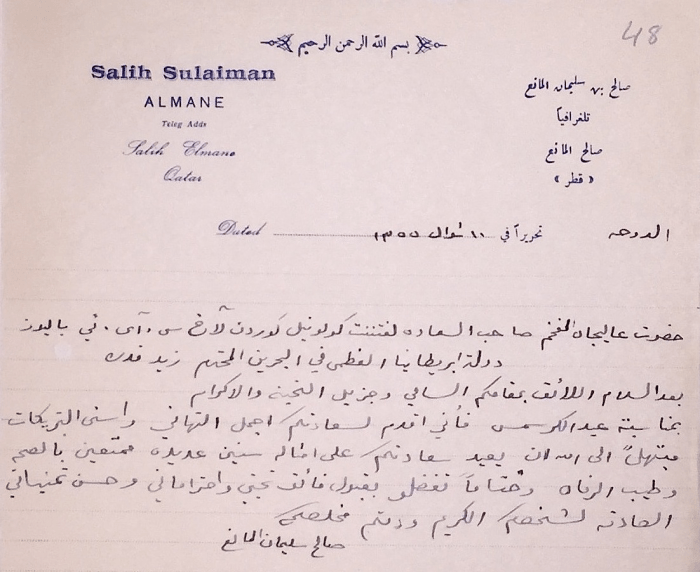 48
بسم الله الرحمن الرحيم
Salih Sulaiman
ALMANE
Teleg Adds
Salih Elmane
Qatar
صالح بن سليمان المانع
تلغرافياً
صالح المانع
« قطر »
الدوحه تحريراً في ١٠ شوال ١٣٥٥ Dated
حضرت عاليجاه المفخم صاحب السعاده لفتننت كولونيل كوردن لاخ س . آى . ئي باليوز
دولة ابريطانيا العظمى في البحرين المحترم زيد قدره
بعد السلام اللائق بمقامكم السامي وجزيل التحية والاكرام
بمناسبة عيد الكرسمس فأني اقدم لسعادتكم اجمل التهاني واسنى التبريكات
مبتهلاً الى الله ان يعيد سعادتكم على امثاله سنين عديده ممتعين بالصحه
وطيب الرفاه وختاماً تفضلو بقبول فائق تحيتي واحتراماتي وحسن تمنياتي
الصادقه لشخصكم الكريم ودمتم مخلصكم
صالح سليمان المانع